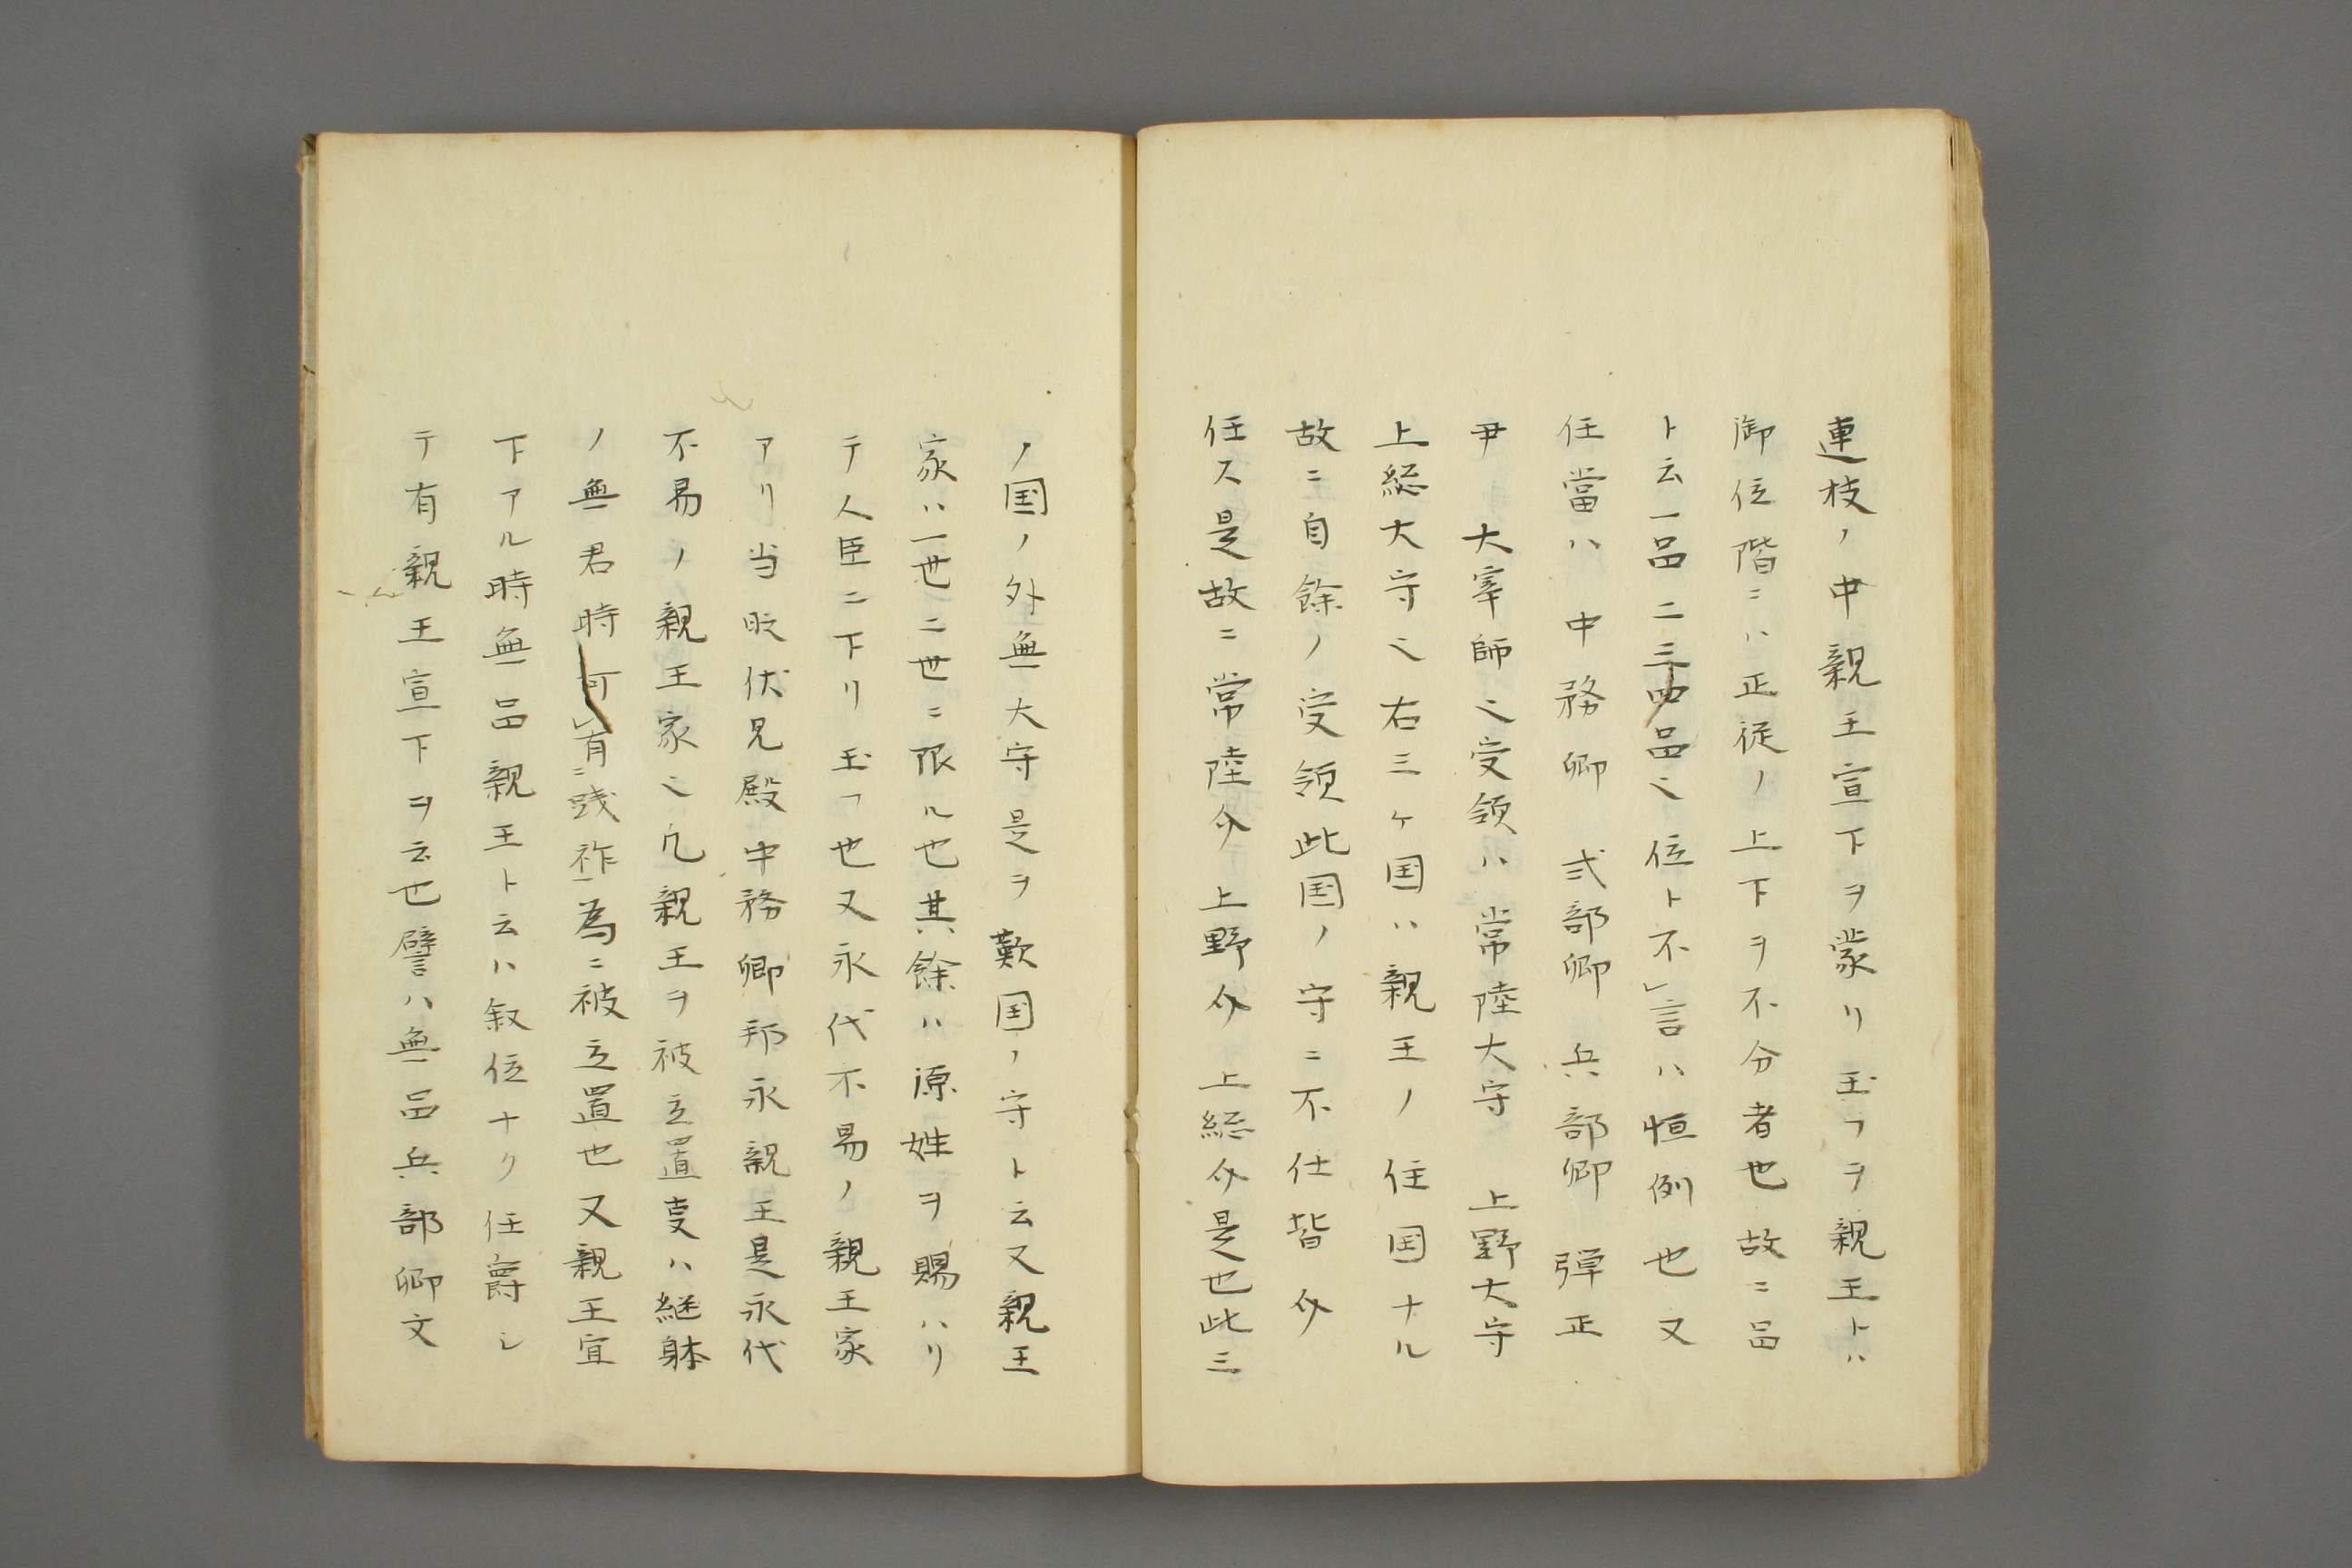 連枝ノ中親王宣下ヲ蒙リ玉フヲ親王トハ
御位階ニハ正従ノ上下ヲ不分者也故ニ品
ト云一品二三四品之位ト不レ言ハ恒例也又
任當ハ中務卿 式部卿 兵部卿 弾正
尹 大宰師之受領ハ常陸大守 上野大守
上総大守之右三ケ国ハ親王ノ任国ナル
故ニ自餘ノ受領此国ノ守ニ不仕皆介
任ス是故ニ常陸介 上野介 上総介是也此三
ノ国ノ外無大守是ヲ歎国ノ守ト云又親王
家ハ一世二世ニ限ル也其餘ハ源姓ヲ賜ハリ
テ人臣ニ下リ玉フ也又永代不易ノ親王家
アリ当時伏見殿中務卿邦永親王是永代
不易ノ親王家之凡親王ヲ被立置叓ハ継躰
ノ無君時可レ有二践祚一為ニ被立置也又親王宣
下アル時無品親王ト云ハ叙位ナク任爵シ
テ有親王宣下ヲ云也譬ハ無品兵部卿文